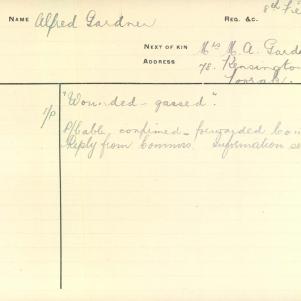 NAME Alfred Gardner
REG. &C. 8th
NEXT OF KIN Mrs M. A. Gard
ADDRESS 78. Kensington
"Wounded - gassed".
confirmed - forwarded
Reply from Commrs. Information